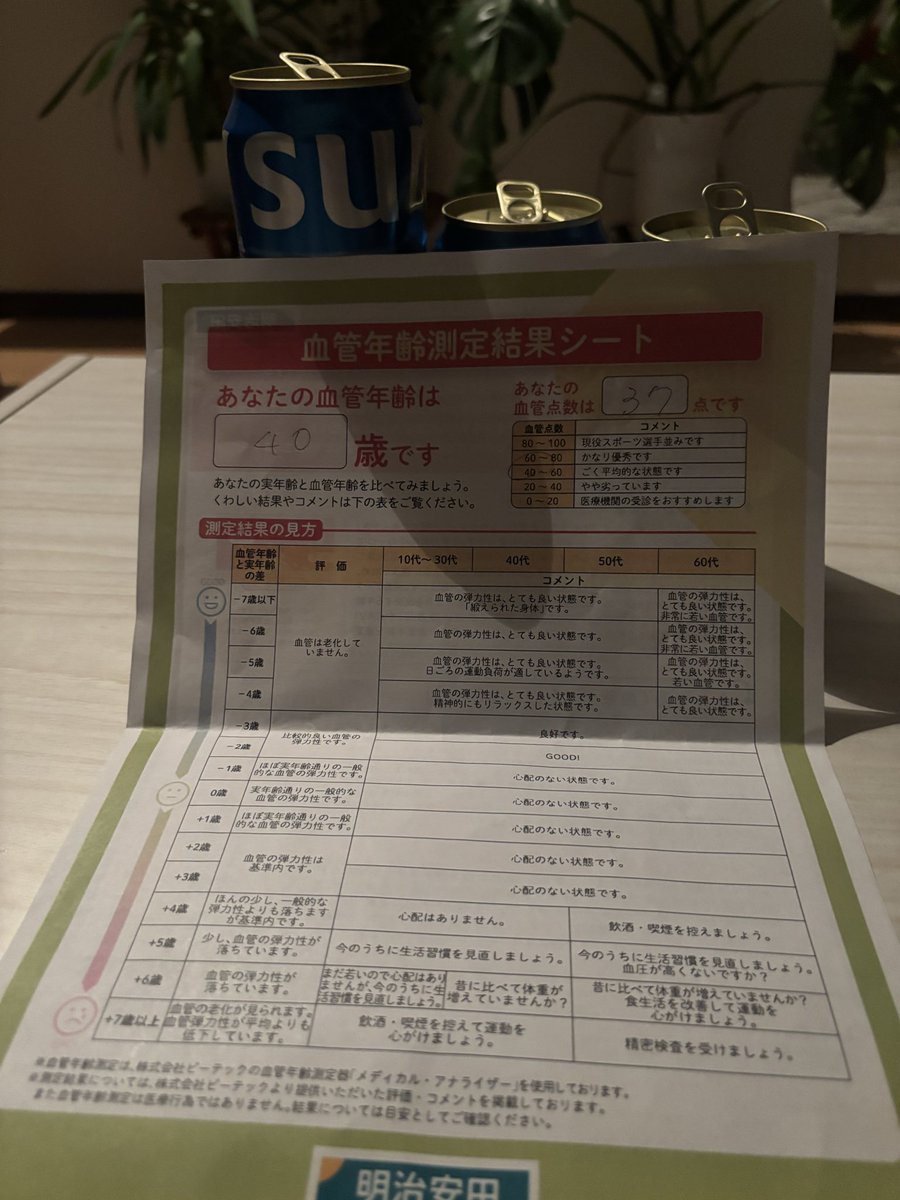 SU
血管年齢測定結果シート
あなたの血管年齢は
40
歳です
あなたの実年齢と血管年齢を比べてみましょう。
くわしい結果やコメントは下の表をご覧ください。
あなたの
血管点数は 37 点です
血管点数 コメント
80～100 現役スポーツ選手並みです
60～80 かなり優秀です
40～60 ごく平均的な状態です
20～40 やや劣っています
0～20 医療機関の受診をおすすめします
測定結果の見方
血管年齢
と実年齢
の差
評価
10代～30代 40代 50代 60代
コメント
-7歳以下
血管の弾力性は、とても良い状態です。
「鍛えられた身体」です。
血管の弾力性は、
とても良い状態です。
非常に若い血管です。
血管は老化して
いません。
-6歳
血管の弾力性は、とても良い状態です。
血管の弾力性は、
とても良い状態です。
非常に若い血管です。
-5歳
血管の弾力性は、とても良い状態です。
日ごろの運動負荷が適しているようです。
血管の弾力性は、
とても良い状態です。
若い血管です。
-4歳
血管の弾力性は、とても良い状態です。
精神的にもリラックスした状態です。
血管の弾力性は、
とても良い状態です。
-3歳
比較的良い血管の
弾力性です。
良好です。
-2歳
GOOD!
-1歳
ほぼ実年齢通りの一般
的な血管の弾力性です。
心配のない状態です。
0歳
実年齢通りの一般的な
血管の弾力性です。
心配のない状態です。
+1歳
ほぼ実年齢通りの一般
的な血管の弾力性です。
心配のない状態です。
+2歳
血管の弾力性は
基準内です。
心配のない状態です。
+3歳
心配のない状態です。
+4歳
ほんの少し、一般的な
弾力性よりも落ちます
が基準内です。
心配はありません。
飲酒・喫煙を控えましょう。
+5歳
少し、血管の弾力性が
落ちています。
今のうちに生活習慣を見直しましょう。
今のうちに生活習慣を見直しましょう。
血圧が高くないですか？
+6歳
血管の弾力性が
落ちています。
まだ若いので心配はあり
ませんが、今のうちに生
活習慣を見直しましょう。
昔に比べて体重が
増えていませんか？
昔に比べて体重が増えていませんか？
食生活を改善して運動を
心がけましょう。
+7歳以上
血管の老化が見られます。
血管弾力性が平均よりも
低下しています。
飲酒・喫煙を控えて運動を
心がけましょう。
精密検査を受けましょう。
※血管年齢測定は、株式会社ピーテックの血管年齢測定器「メディカル・アナライザー」を使用しております。
※測定結果については、株式会社ピーテックより提供いただいた評価・コメントを掲載しております。
また血管年齢測定は医療行為ではありません。結果については目安としてご確認ください。
明治安田